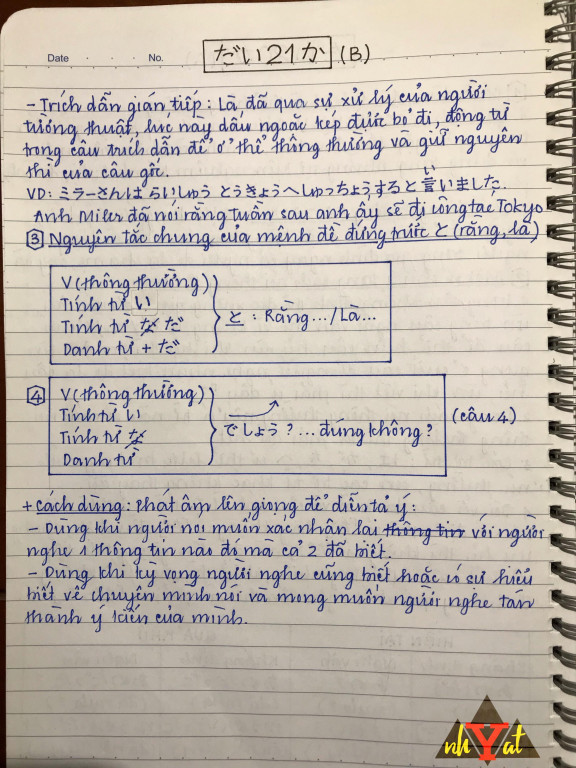 Date . . . No.
だい21か (B)
- Trích dẫn gián tiếp: Là đã qua sự xử lý của người
tường thuật, lúc này dấu ngoặc kép được bỏ đi, động từ
trong câu trích dẫn để ở thể thông thường và giữ nguyên
thì của câu gốc.
い
VD: ミラーさんは らいしゅう とうきょうへしゅっちょうすると言いました.
Anh Miler đã nói rằng tuần sau anh ấy sẽ đi công tác Tokyo
3 Nguyên tắc chung của mệnh đề đứng trước と (rằng, là)
V (thông thường)
Tính từ い
Tính từ な だ
Danh từ + だ
と : Rằng.../Là...
4 V (thông thường)
Tính từ い
Tính từ な
Danh từ
でしょう? ...đúng không?
(câu 4)
+ Cách dùng: Phát âm lên giọng để diễn tả ý:
- Dùng khi người nói muốn xác nhận lại thông tin với người
nghe 1 thông tin nào đó mà cả 2 đã biết.
- Dùng khi kỳ vọng người nghe cũng biết hoặc có sự hiểu
biết về chuyện mình nói và mong muốn người nghe tán
thành ý kiến của mình.
nhYat